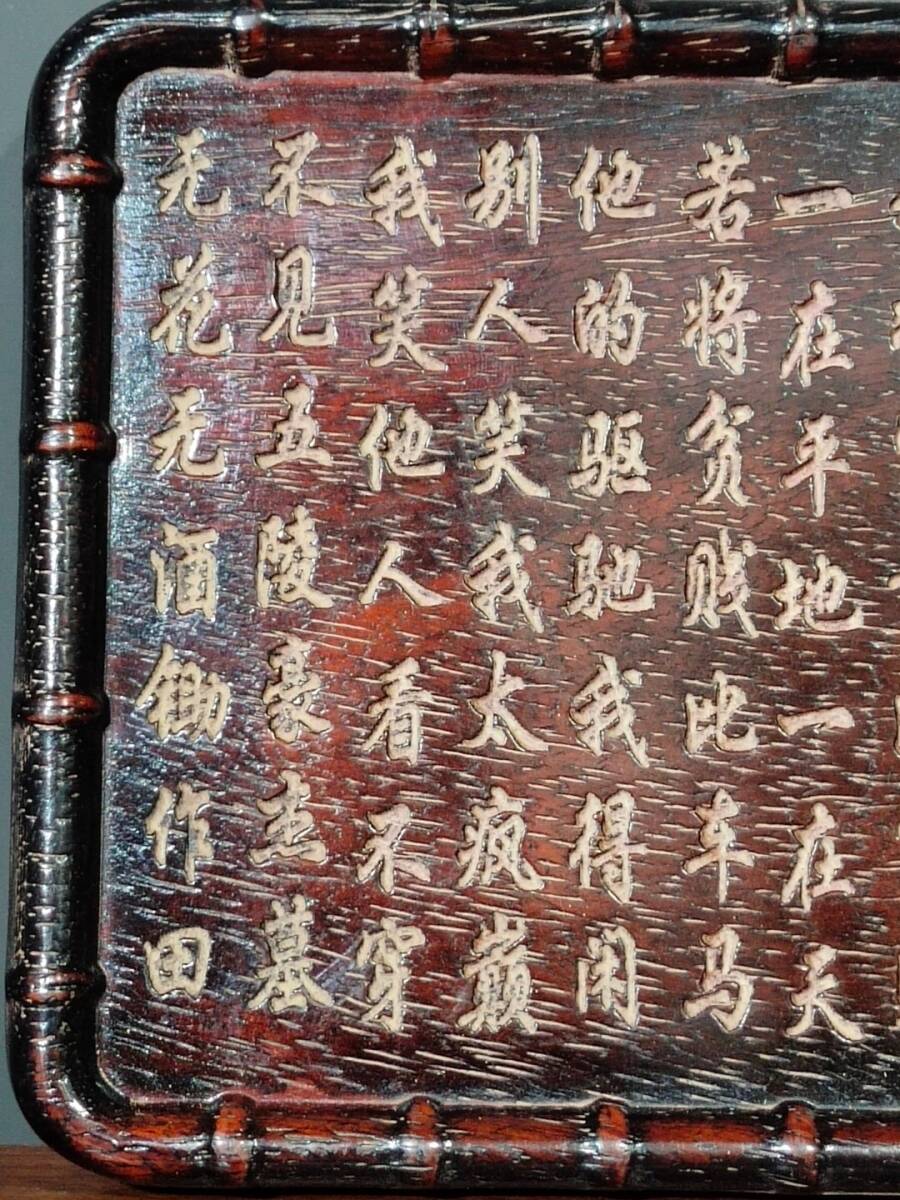 一在平地一在天
若将贫贱比车马
他的驱驰我得闲
别人笑我太疯巅
我笑他人看不穿
不见五陵豪杰墓
无花无酒锄作田